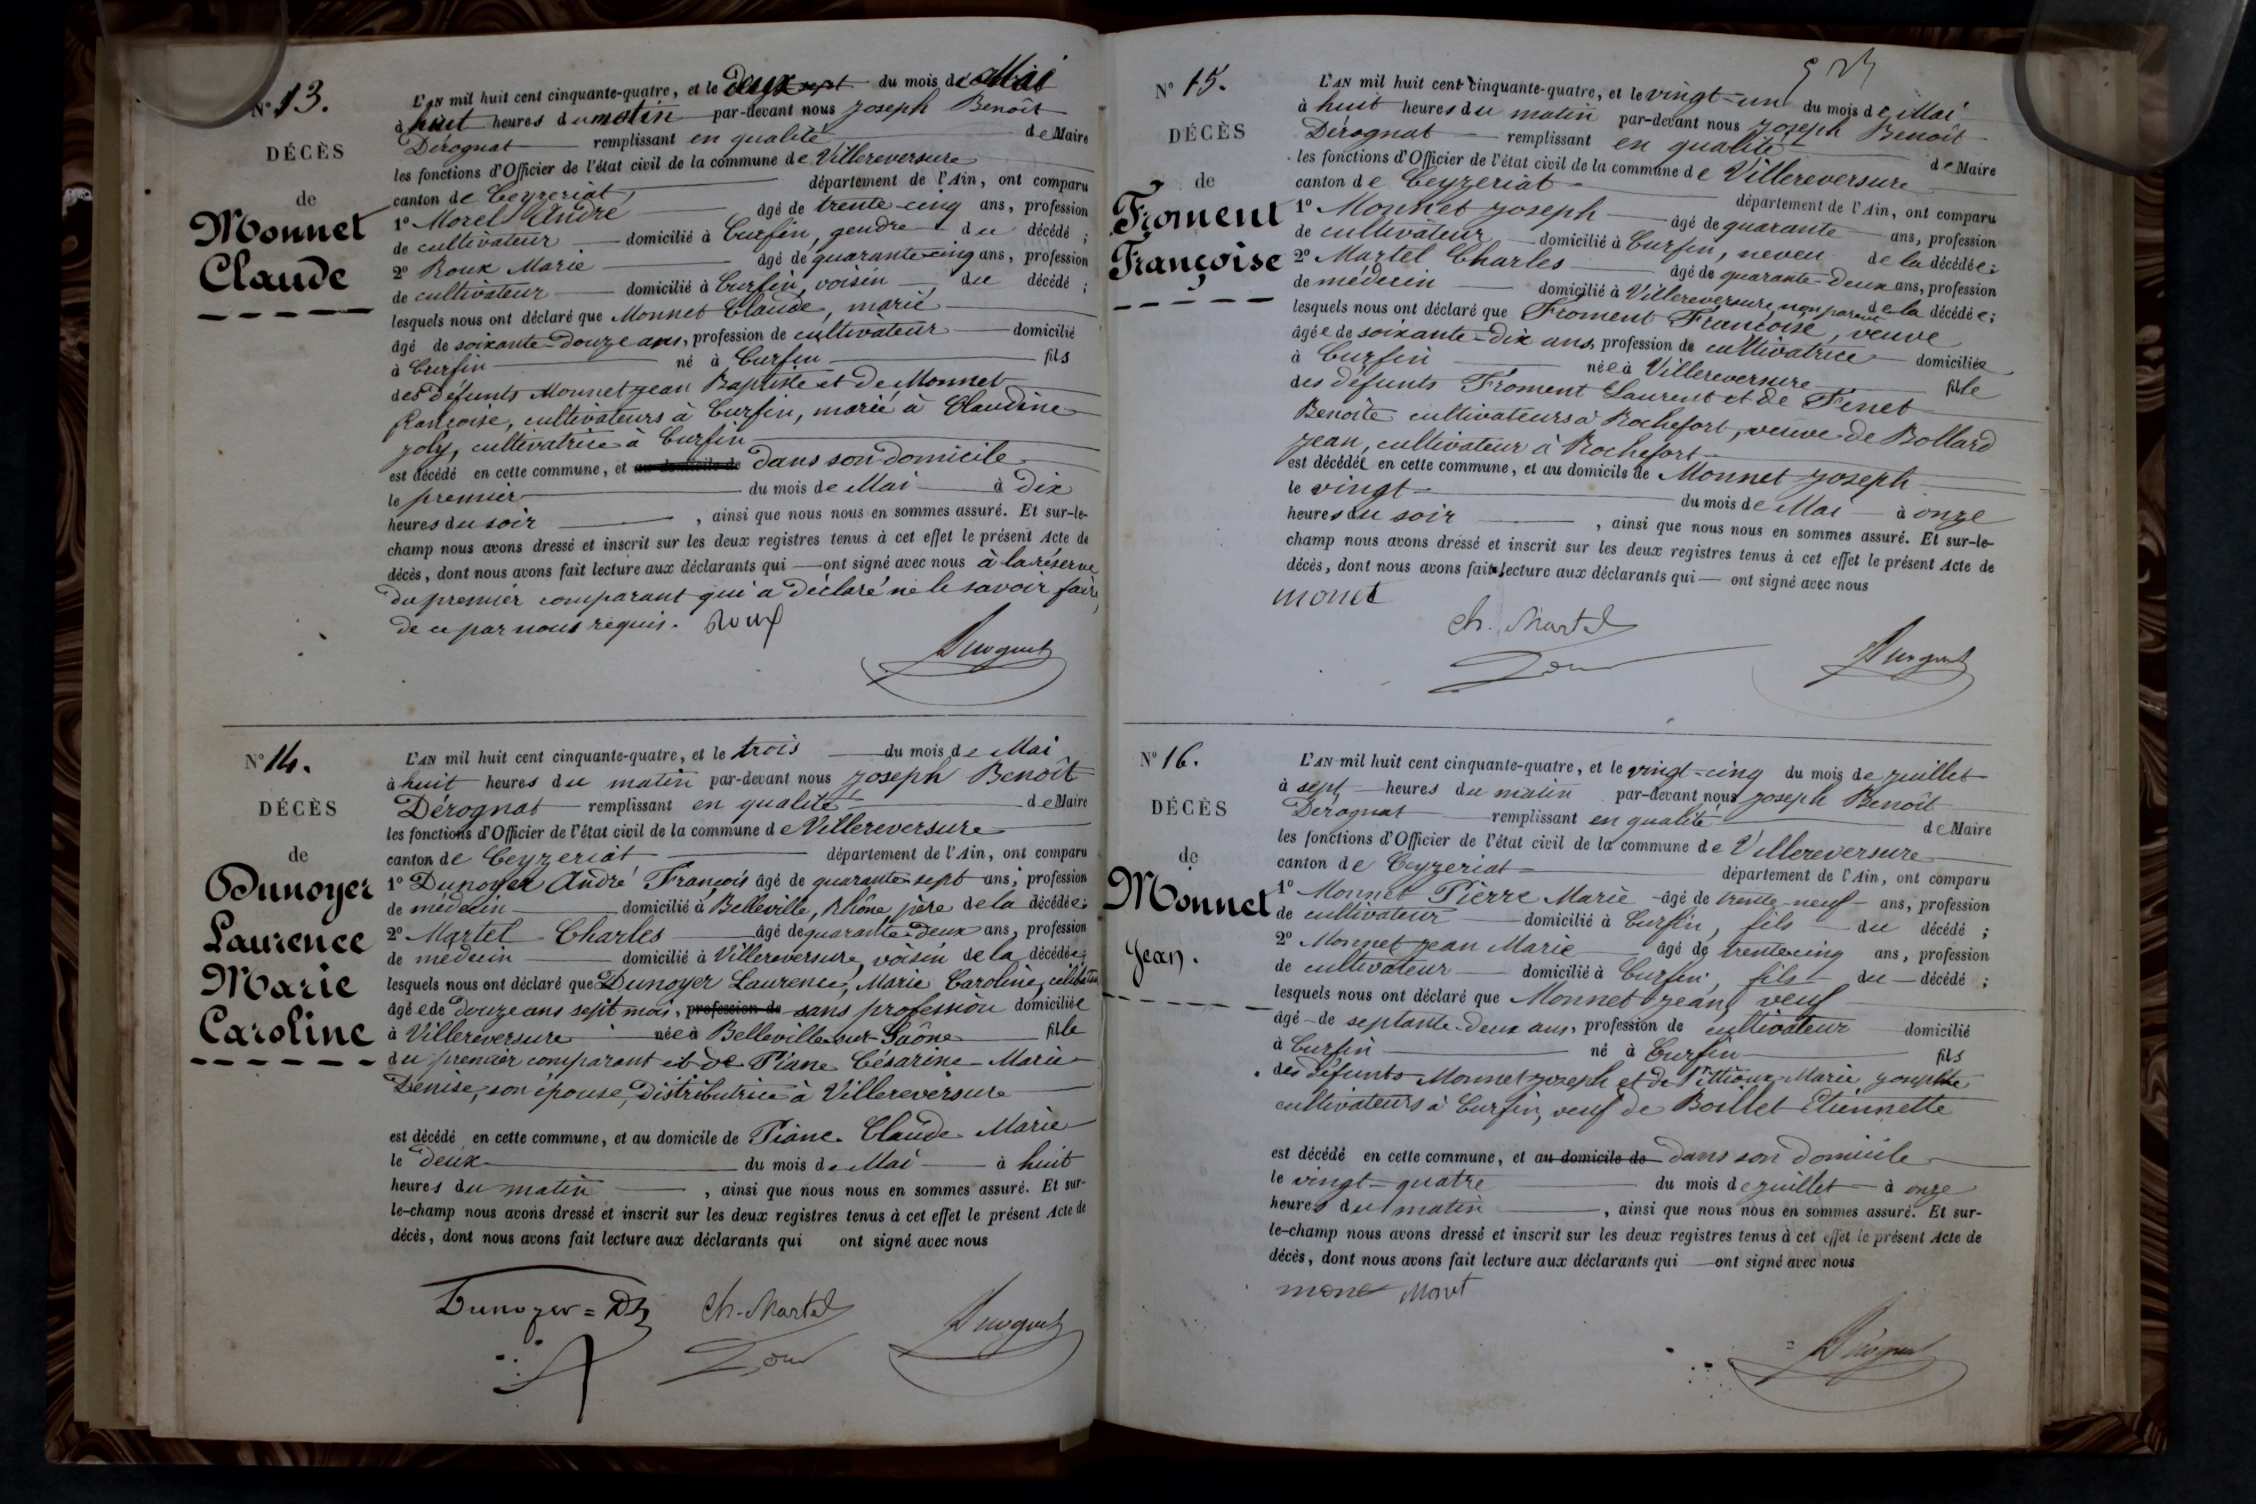 N° 13.
DÉCÈS
de
Monnet
Claude
L'AN mil huit cent cinquante-quatre, et le deux du mois de Mai
à huit heures du matin par-devant nous Joseph Benoît
Dérognat remplissant en qualité de Maire
les fonctions d'Officier de l'état civil de la commune de Villereversure
canton de Ceyzeriat département de l'Ain, ont comparu
1° Morel André âgé de trente-cinq ans, profession
de cultivateur domicilié à Curfin, gendre du décédé ;
2° Roux Marie âgé de quarante-cinq ans, profession
de cultivateur domicilié à Curfin, voisin du décédé ;
lesquels nous ont déclaré que Monnet Claude, marié
âgé de soixante-douze ans, profession de cultivateur domicilié
à Curfin né à Curfin fils
des défunts Monnet Jean Baptiste et de Monnet
françoise, cultivateurs à Curfin, marié à Claudine
Joly, cultivatrice à Curfin
est décédé en cette commune, et au domicile de dans son domicile
le premier du mois de Mai à dix
heures du soir , ainsi que nous nous en sommes assuré. Et sur-le-
champ nous avons dressé et inscrit sur les deux registres tenus à cet effet le présent Acte de
décès, dont nous avons fait lecture aux déclarants qui ont signé avec nous à la réserve
du premier comparant qui a déclaré ne le savoir faire,
de ce par nous requis. Roux
Dérognat
N° 14.
DÉCÈS
de
Dunoyer
Laurence
Marie
Caroline
L'AN mil huit cent cinquante-quatre, et le trois du mois de Mai
à huit heures du matin par-devant nous Joseph Benoît
Dérognat remplissant en qualité de Maire
les fonctions d'Officier de l'état civil de la commune de Villereversure
canton de Ceyzeriat département de l'Ain, ont comparu
1° Dunoyer André François âgé de quarante-sept ans, profession
de médecin domicilié à Belleville, Rhône, père de la décédée ;
2° Martel Charles âgé de quarante-deux ans, profession
de médecin domicilié à Villereversure, voisin de la décédée ;
lesquels nous ont déclaré que Dunoyer Laurence, Marie Caroline, célibataire
âgée de douze ans sept mois, profession de sans profession domiciliée
à Villereversure née à Belleville-sur-Saône fille
du premier comparant et de Piane Césarine Marie
Denise, son épouse, distributrice à Villereversure
est décédé en cette commune, et au domicile de Piane Claude Marie
le deux du mois de Mai à huit
heures du matin , ainsi que nous nous en sommes assuré. Et sur-
le-champ nous avons dressé et inscrit sur les deux registres tenus à cet effet le présent Acte de
décès, dont nous avons fait lecture aux déclarants qui ont signé avec nous
Dunoyer Ch. Martel Dérognat
N° 15.
DÉCÈS
de
Froment
Françoise
L'AN mil huit cent cinquante-quatre, et le vingt-un du mois de Mai
à huit heures du matin par-devant nous Joseph Benoît
Dérognat remplissant en qualité de Maire
les fonctions d'Officier de l'état civil de la commune de Villereversure
canton de Ceyzeriat département de l'Ain, ont comparu
1° Monnet Joseph âgé de quarante ans, profession
de cultivateur domicilié à Curfin, neveu de la décédée ;
2° Martel Charles âgé de quarante-deux ans, profession
de médecin domicilié à Villereversure, non parent de la décédée ;
lesquels nous ont déclaré que Froment Françoise, veuve
âgée de soixante-dix ans, profession de cultivatrice domiciliée
à Curfin née à Villereversure fille
des défunts Froment Laurent et de Fenet
Benoite cultivateurs à Rochefort, veuve de Bollard
Jean, cultivateur à Rochefort
est décédée en cette commune, et au domicile de Monnet Joseph
le vingt du mois de Mai à onze
heures du soir , ainsi que nous nous en sommes assuré. Et sur-le-
champ nous avons dressé et inscrit sur les deux registres tenus à cet effet le présent Acte de
décès, dont nous avons fait lecture aux déclarants qui ont signé avec nous
monet
Ch. Martel
Dérognat
N° 16.
DÉCÈS
de
Monnet
Jean.
L'AN mil huit cent cinquante-quatre, et le vingt-cinq du mois de juillet
à sept heures du matin par-devant nous Joseph Benoît
Dérognat remplissant en qualité de Maire
les fonctions d'Officier de l'état civil de la commune de Villereversure
canton de Ceyzeriat département de l'Ain, ont comparu
1° Monnet Pierre Marie âgé de trente-neuf ans, profession
de cultivateur domicilié à Curfin, fils du décédé ;
2° Monnet Jean Marie âgé de trente-cinq ans, profession
de cultivateur domicilié à Curfin, fils du décédé ;
lesquels nous ont déclaré que Monnet Jean, veuf
âgé de septante-deux ans, profession de cultivateur domicilié
à Curfin né à Curfin fils
des défunts Monnet Joseph et de Marie Josephte
cultivateurs à Curfin, veuf de Boillet Etiennette
est décédé en cette commune, et au domicile de dans son domicile
le vingt-quatre du mois de juillet à onze
heures du matin , ainsi que nous nous en sommes assuré. Et sur-
le-champ nous avons dressé et inscrit sur les deux registres tenus à cet effet le présent Acte de
décès, dont nous avons fait lecture aux déclarants qui ont signé avec nous
monet Monet
Dérognat